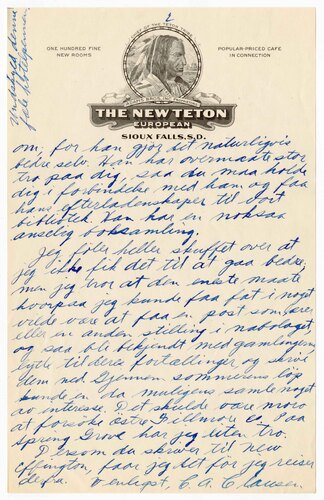 2
Undskyld denne
fæle blækpennen.
HOME OF THE TETON TRIBE
ONE HUNDRED FINE
NEW ROOMS
POPULAR-PRICED CAFE
IN CONNECTION
THE NEW TETON
EUROPEAN
SIOUX FALLS, S.D.
om, for han gjør det naturligvis
bedre selv. Han har overmaate stor
tro paa dig, saa du maa holde
dig i forbindelse med ham og faa
hans efterladenskaper til vort
bibliotek. Han har en noksaa
anselig boksamling.
Jeg føler heller skuffet over at
jeg ikke fik det til at gaa bedre,
men jeg tror at den eneste maate
hvorpaa jeg kunde faa fat i noget
vilde være at faa en post som lærer
eller en anden stilling i nabolaget,
og saa bli bekjendt med gamlingene,
lytte til deres fortællinger og skrive
dem ned. Gjennem sommerens løp
kunde en da muligens samle noget
av interesse. Det skulde være moro
at forsøke østre Fillmore Co. Paa
Spring Grove har jeg liten tro.
Dersom du skriver til New
Effington, faar jeg det før jeg reiser
derfra. Venligst, C. A. Clausen